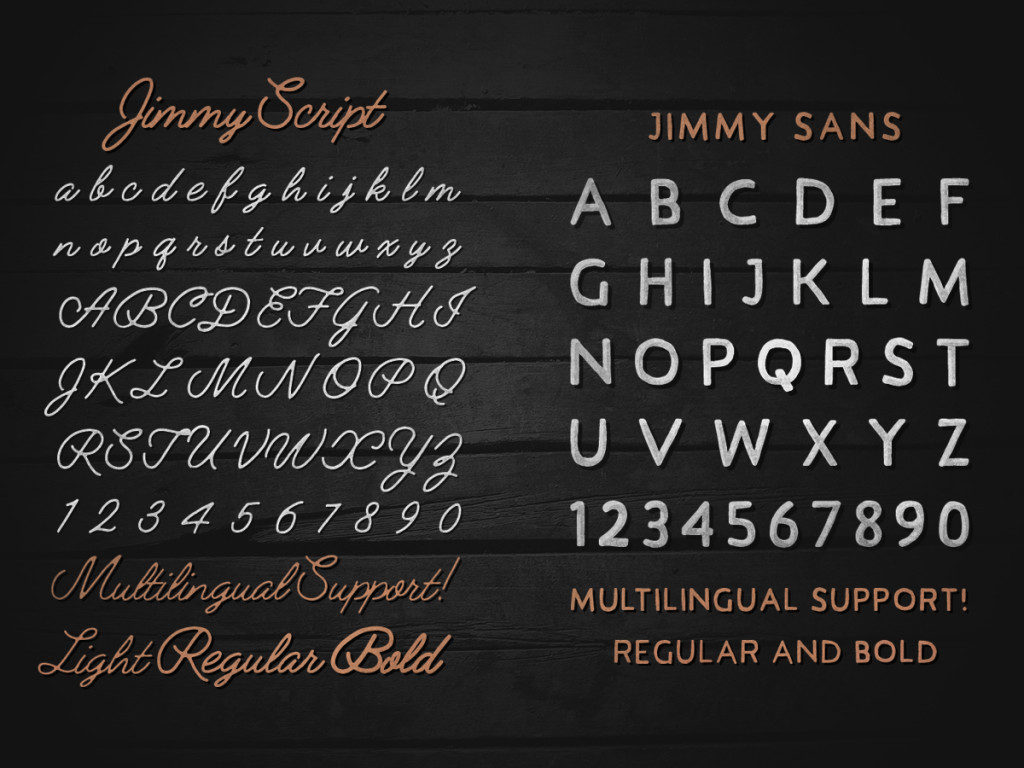 Jimmy Script
a b c d e f g h i j k l m
n o p q r s t u v w x y z
A B C D E F G H I
J K L M N O P Q
R S T U V W X Y Z
1 2 3 4 5 6 7 8 9 0
Multilingual Support!
Light Regular Bold
JIMMY SANS
A B C D E F
G H I J K L M
N O P Q R S T
U V W X Y Z
1 2 3 4 5 6 7 8 9 0
MULTILINGUAL SUPPORT!
REGULAR AND BOLD